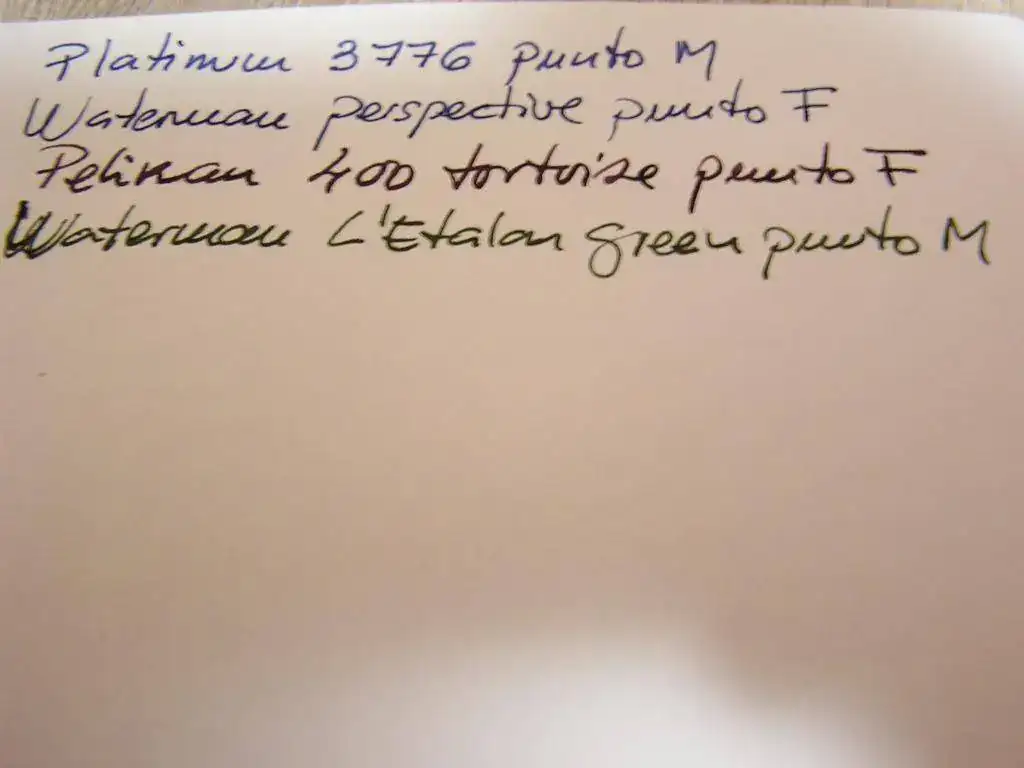 Platinum 3776 punto M
Waterman perspective punto F
Pelikan 400 tortoise punto F
Waterman L'Etalon green punto M